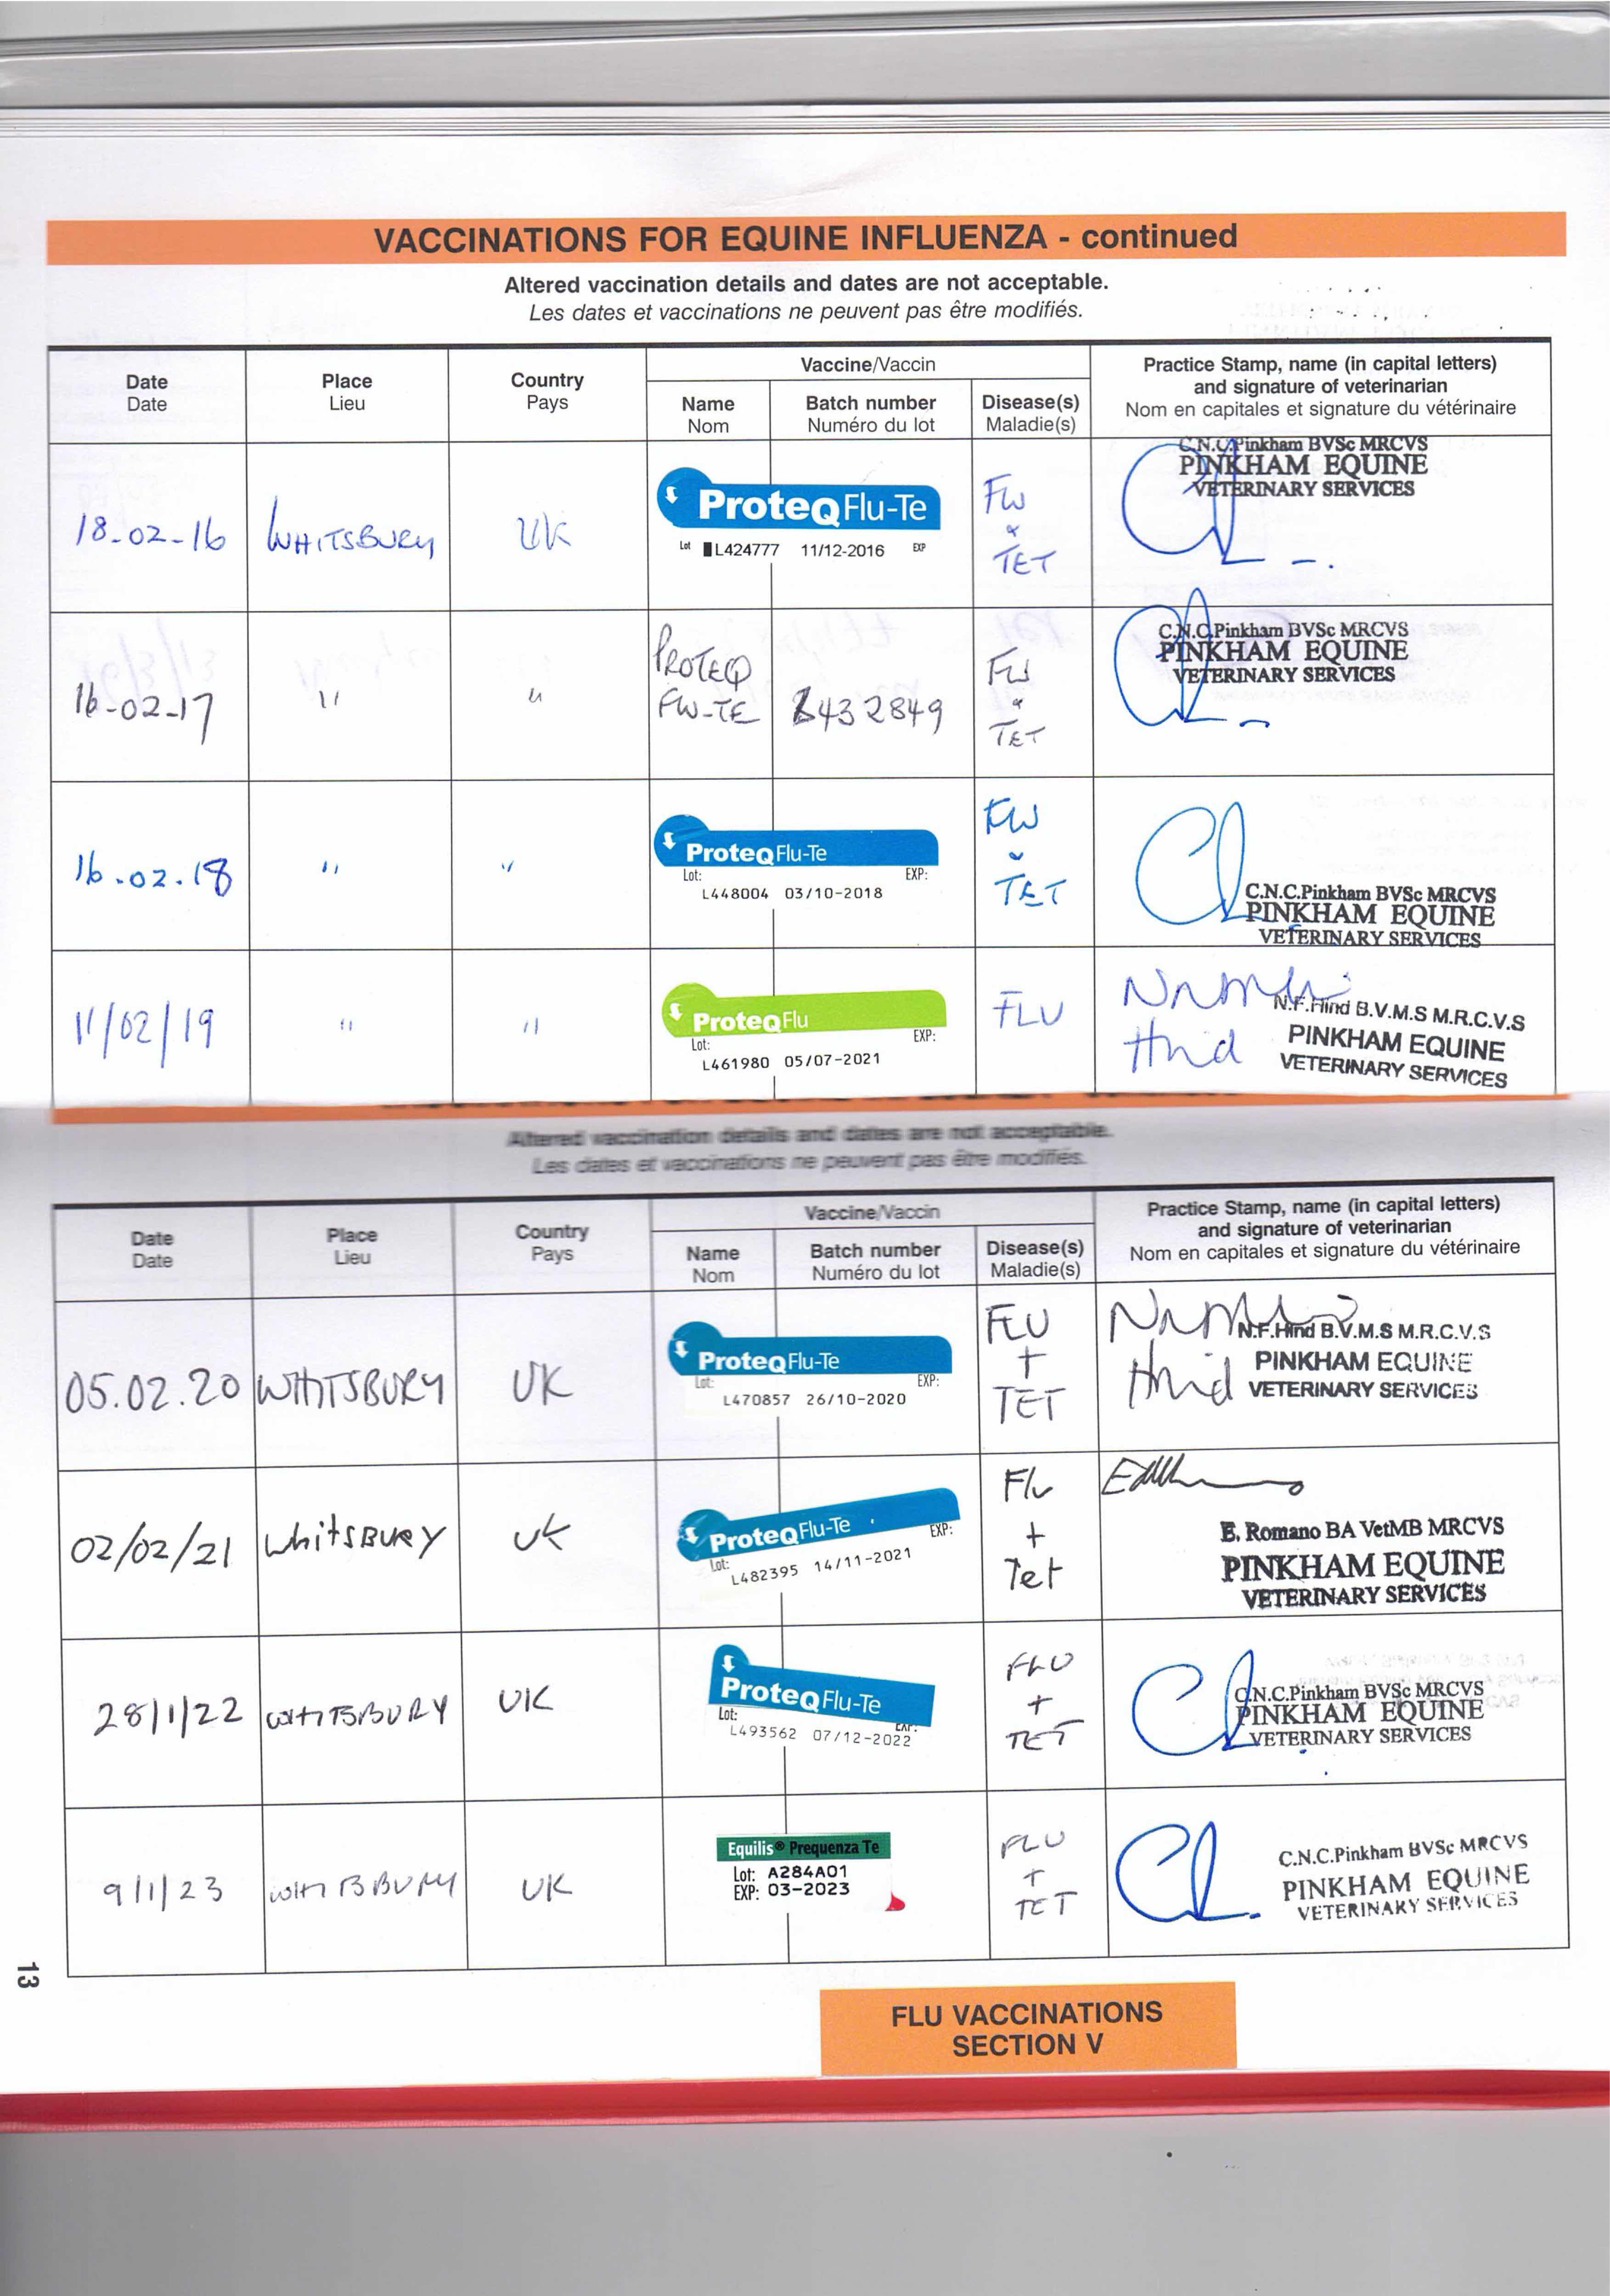 VACCINATIONS FOR EQUINE INFLUENZA - continued
Altered vaccination details and dates are not acceptable.
Les dates et vaccinations ne peuvent pas être modifiés.
Date Place Country Vaccine/Vaccin Practice Stamp, name (in capital letters)
Date Lieu Pays and signature of veterinarian
Name Batch number Disease(s) Nom en capitales et signature du vétérinaire
Nom Numéro du lot Maladie(s)
C.N.C.Pinkham BVSc MRCVS
PINKHAM EQUINE
VETERINARY SERVICES
18-02-16 WHITSBURY UK ProteqFlu-Te FLU
Lot L424777 11/12-2016 EXP &
TET
C.N.C.Pinkham BVSc MRCVS
PINKHAM EQUINE
VETERINARY SERVICES
16-02-17 " " PROTEQ FLU
FLU-TE 432849 &
TET
16.02.18 " " ProteqFlu-Te FLU
Lot: EXP:
L448004 03/10-2018 TET
C.N.C.Pinkham BVSc MRCVS
PINKHAM EQUINE
VETERINARY SERVICES
11/02/19 " " ProteqFlu FLU
Lot: EXP:
L461980 05/07-2021
Hind
N.F.Hind B.V.M.S M.R.C.V.S
PINKHAM EQUINE
VETERINARY SERVICES
Altered vaccination details and dates are not acceptable.
Les dates et vaccinations ne peuvent pas être modifiés.
Date Place Country Vaccine/Vaccin Practice Stamp, name (in capital letters)
Date Lieu Pays and signature of veterinarian
Name Batch number Disease(s) Nom en capitales et signature du vétérinaire
Nom Numéro du lot Maladie(s)
05.02.20 WHITSBURY UK ProteqFlu-Te FLU
Lot: EXP: +
L470857 26/10-2020 TET
Hind
N.F.Hind B.V.M.S M.R.C.V.S
PINKHAM EQUINE
VETERINARY SERVICES
02/02/21 WhitsBURY UK ProteqFlu-Te Flu
Lot: EXP: +
L482395 14/11-2021 Tet
E. Romano BA VetMB MRCVS
PINKHAM EQUINE
VETERINARY SERVICES
28/1/22 WHITSBURY UK ProteqFlu-Te FLU
Lot: EXP: +
L493562 07/12-2022 TET
C.N.C.Pinkham BVSc MRCVS
PINKHAM EQUINE
VETERINARY SERVICES
9/1/23 WHITSBURY UK Equilis® Prequenza Te FLU
Lot: A284A01 +
EXP: 03-2023 TET
C.N.C.Pinkham BVSc MRCVS
PINKHAM EQUINE
VETERINARY SERVICES
13
FLU VACCINATIONS
SECTION V